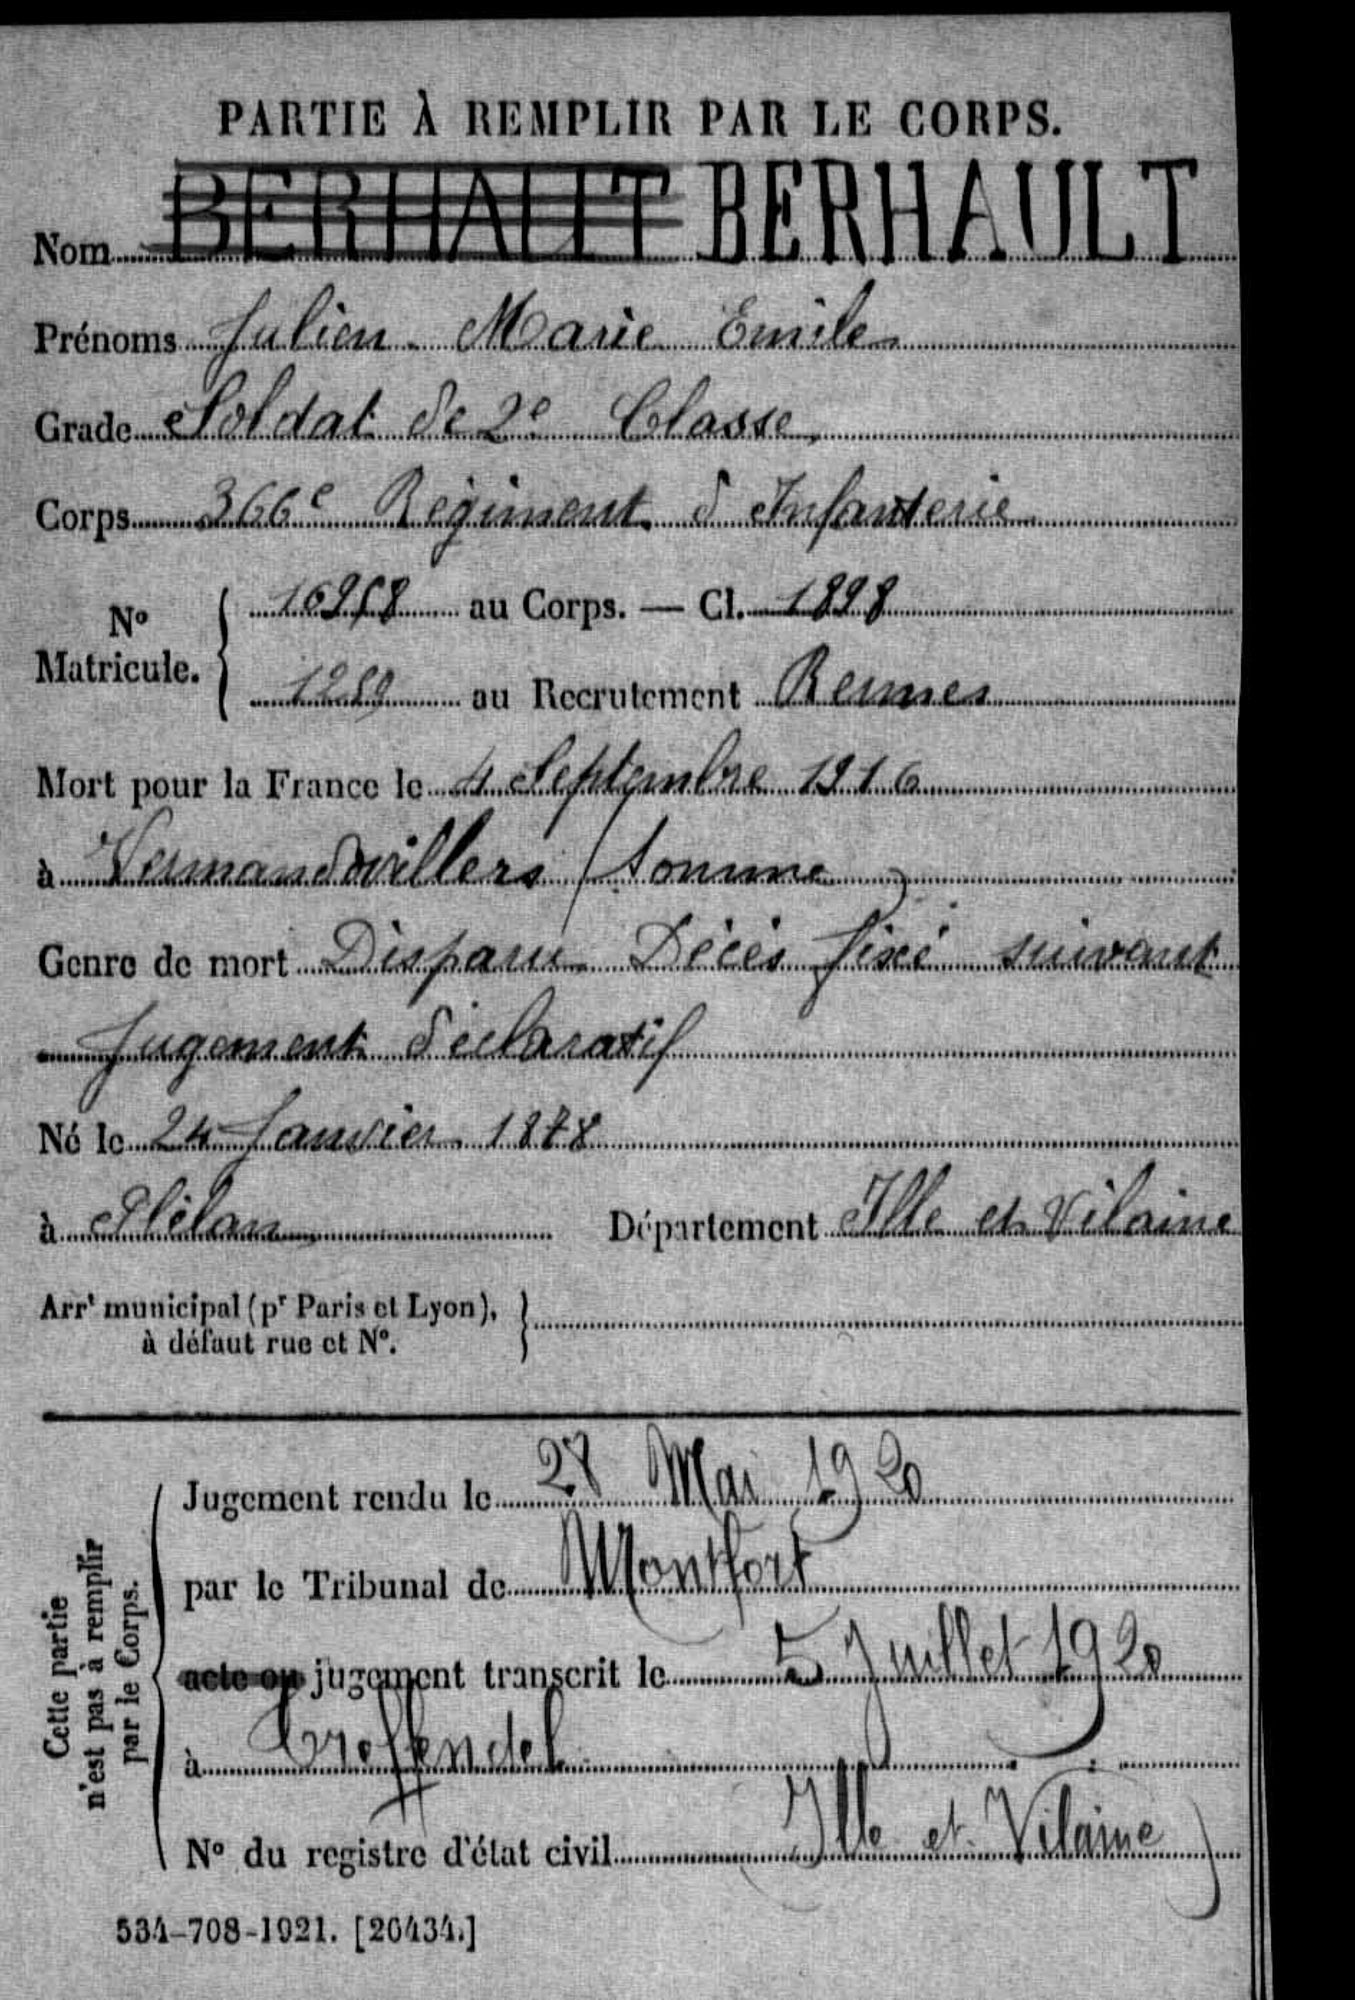 PARTIE À REMPLIR PAR LE CORPS.
Nom BERHAUT BERHAULT
Prénoms Julien Marie Emile
Grade Soldat de 2e Classe
Corps 366e Régiment d Infanterie
No Matricule. 16958 au Corps. — Cl. 1898
1259 au Recrutement Rennes
Mort pour la France le 4 Septembre 1916
à Vermandovillers (Somme)
Genre de mort Disparu Décès fixé suivant
Jugement déclaratif
Né le 24 Janvier 1878
à Plélan Département Ille et Vilaine
Arrt municipal (pr Paris et Lyon),
à défaut rue et No.
Cette partie
n'est pas à remplir
par le Corps.
Jugement rendu le 28 Mai 1920
par le Tribunal de Montfort
acte ou jugement transcrit le 5 Juillet 1920
à Treffendel
No du registre d'état civil Ille et Vilaine)
534-708-1921. [26434.]